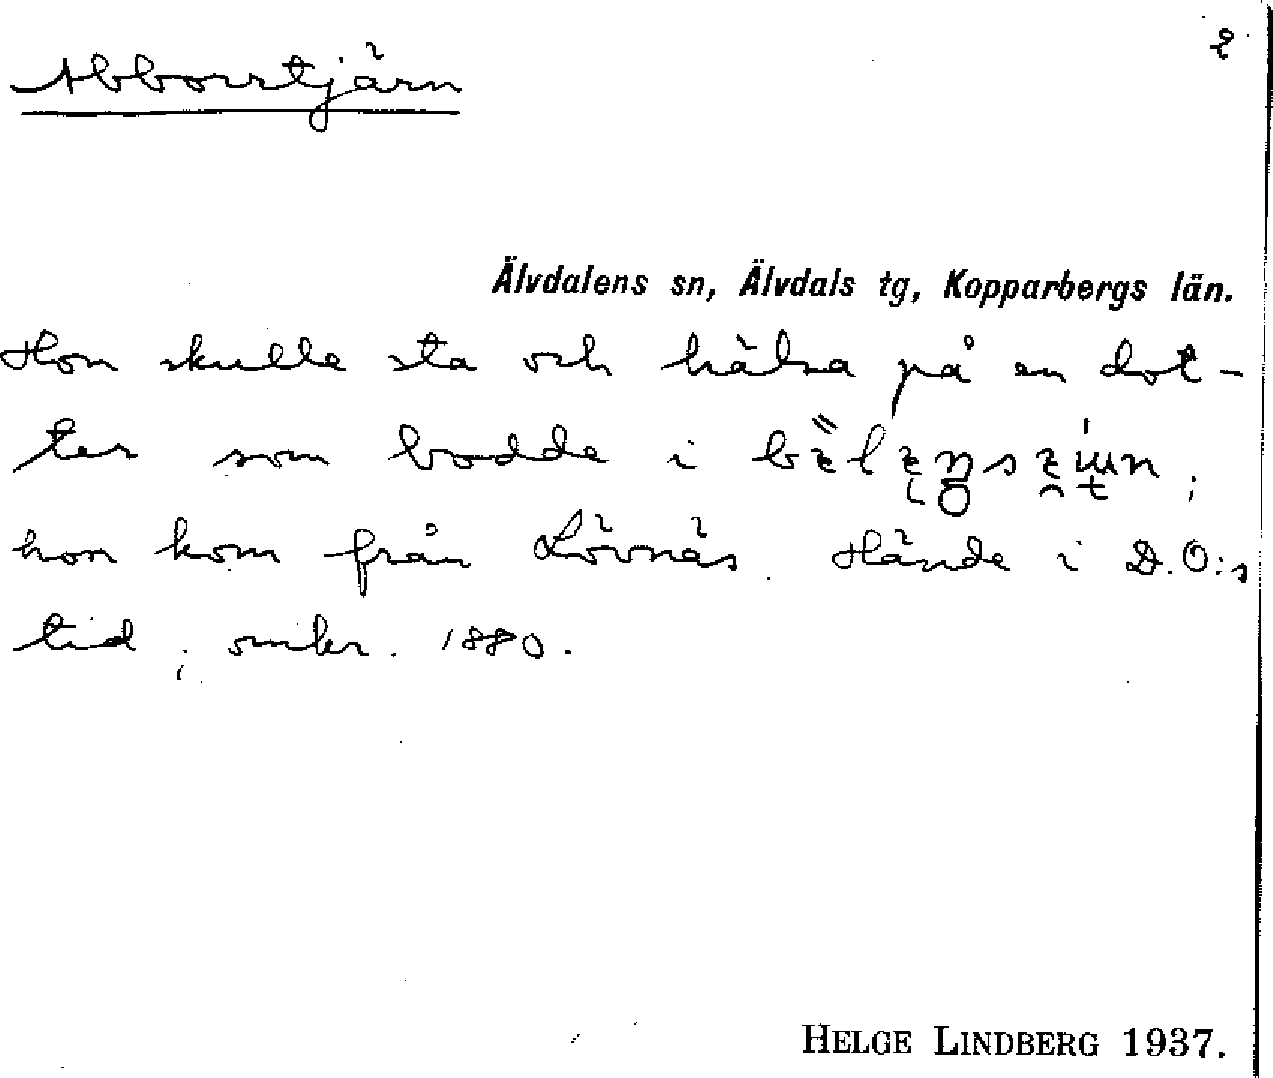 Abborrtjärn
2
Älvdalens sn, Älvdals tg, Kopparbergs län.
Hon skulle sta och hälsa på en dot-
ter som bodde i
hon kom från Lövnäs. Hände i D.O:s
tid, omkr. 1880.
HELGE LINDBERG 1937.